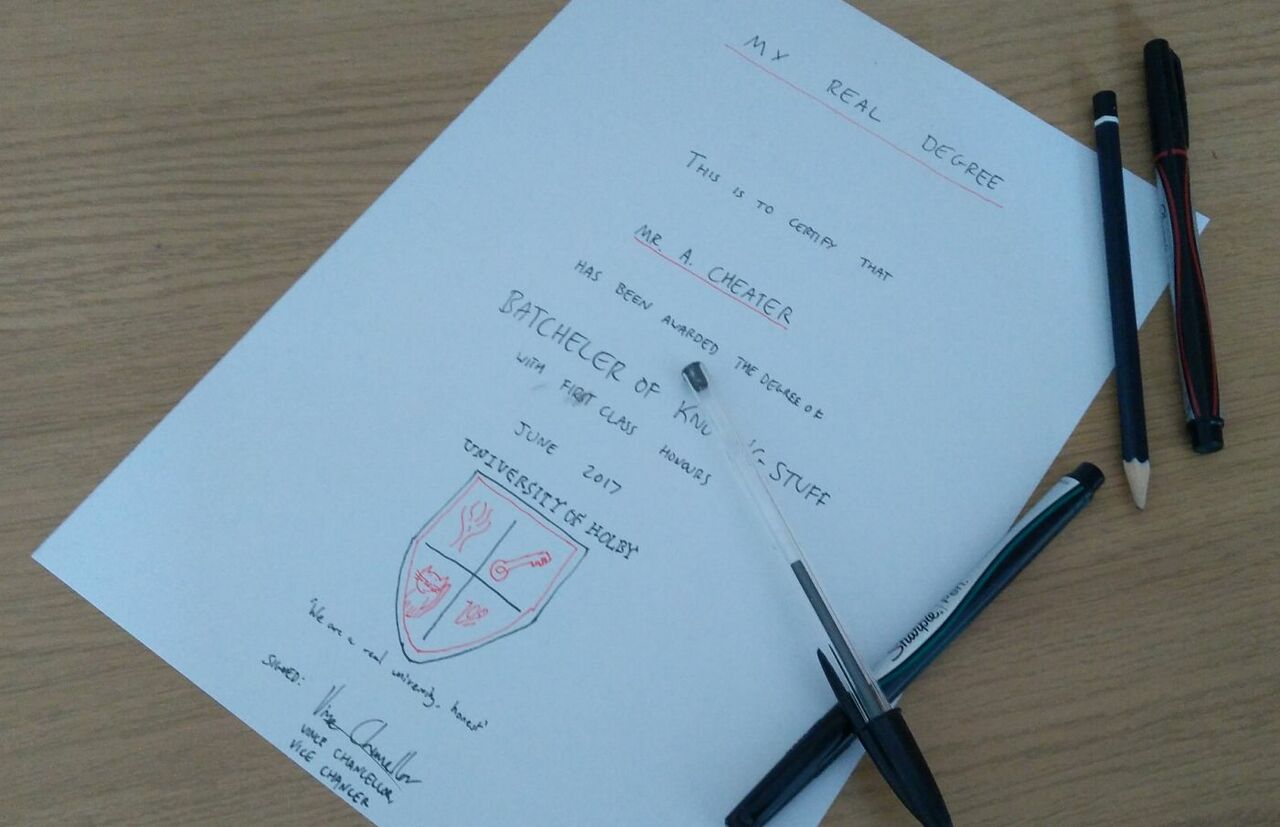 MY REAL DEGREE
THIS IS TO CERTIFY THAT
MR. A. CHEATER
HAS BEEN AWARDED THE DEGREE OF
BATCHELER OF STUFF
WITH FIRST CLASS HONOURS
JUNE 2017
UNIVERSITY OF HOLBY
"We are a real university, honest"
SIGNED:
Vince Chancellor
VINCE CHANCELLOR,
VICE CHANCER